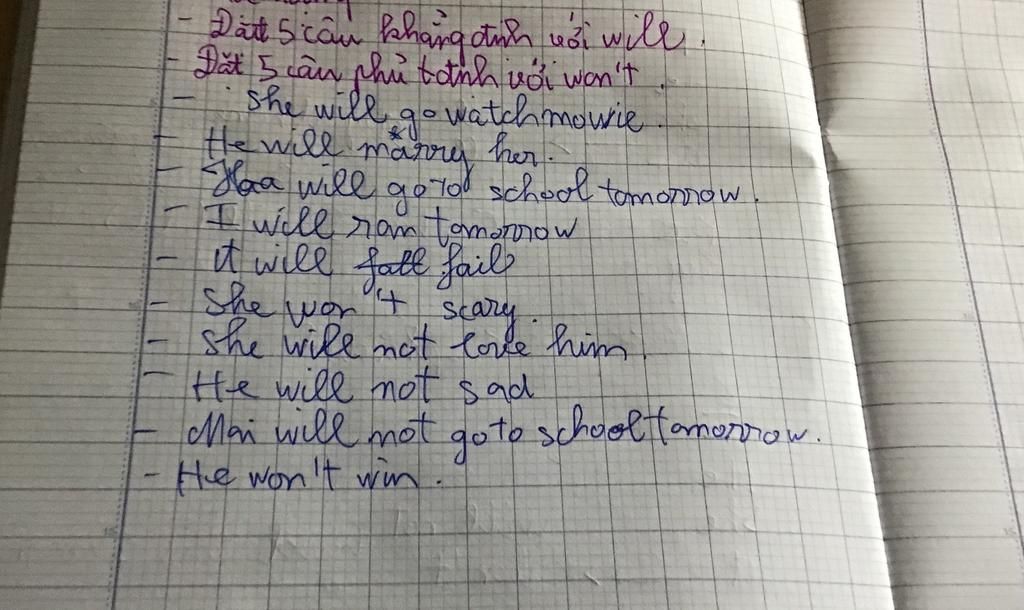 - Đặt 5 câu khẳng định với will.
- Đặt 5 câu phủ định với won't.
- She will go watch mowie.
- He will marry her.
- Hoa will go to school tomorrow.
- I will ran tomorrow
- it will fail
- She won't scary.
- She will not love him
- He will not sad
- Mai will not go to school tomorrow.
- He won't win.